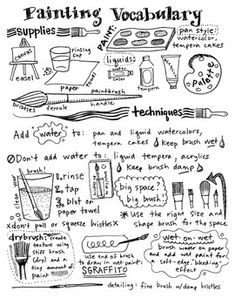 Painting Vocabulary
supplies
canvas
easel
rinsing cup
PAINT:
pan style:
watercolor,
tempera cakes
liquids:
water color
tempera
acrylic
Palette
paper
paintbrush
bristles
ferrule
handle
techniques
Add water to: pan and liquid watercolors,
tempera cakes ( keep brush wet )
Don't add water to: liquid tempera, acrylics
( keep brush damp )
brush!
1. rinse
2. tap
3. blot on
paper towel
big space
big brush
* Use the right size and
shape brush for the space
x don't pull or squeeze bristles
drybrush:
create
texture using
stiff brush
(dry) and a
tiny amount of
paint
use end of brush
to draw in wet paint:
SGRAFFITO
wet on wet
brush water on paper
and add wet paint for
soft-edge, "bleeding"
effect
detailing: fine brush w/ long bristles